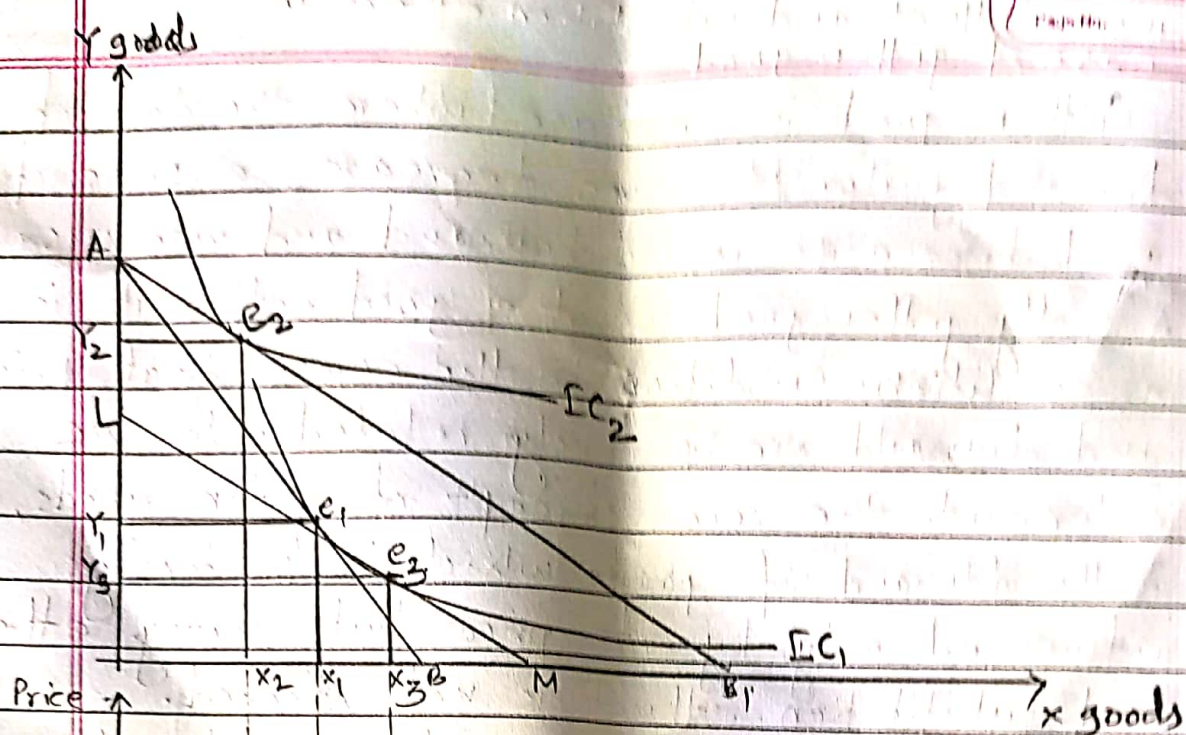 Y goods
A
e2
Y2
IC2
L
e1
Y1
e3
Y3
IC1
x2 x1 x3 B M B1
x goods
Price